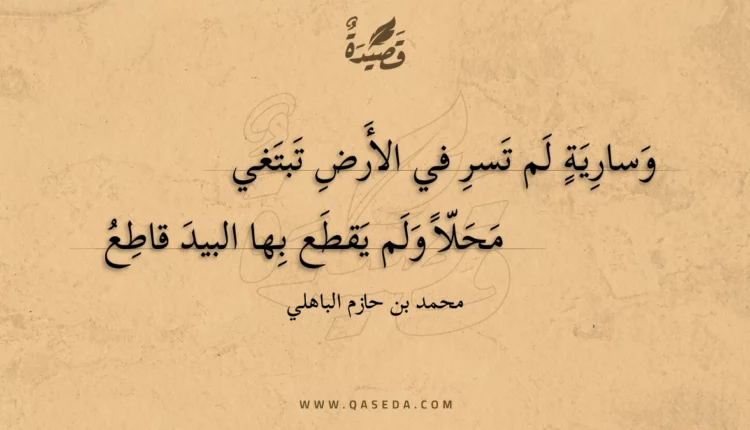 قَصِيدَةٌ
وَسارِيَةٍ لَم تَسرِ في الأَرضِ تَبتَغي
مَحَلّاً وَلَم يَقطَع بِها البيدَ قاطِعُ
محمد بن حازم الباهلي
WWW.QASEDA.COM